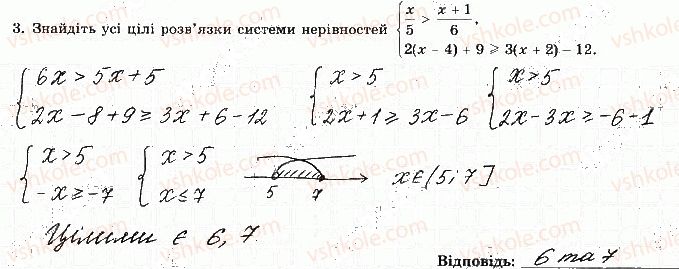 3. Знайдіть усі цілі розв'язки системи нерівностей { x/5 > (x + 1)/6,
2(x − 4) + 9 ⩾ 3(x + 2) − 12.
{ 6x > 5x + 5
2x − 8 + 9 ≥ 3x + 6 − 12
{ x > 5
2x + 1 ≥ 3x − 6
{ x > 5
2x − 3x ≥ −6 − 1
{ x > 5
−x ≥ −7
{ x > 5
x ≤ 7
5 7
x ∈ (5; 7]
Цілими є 6, 7
Відповідь: 6 та 7
vshkole.com